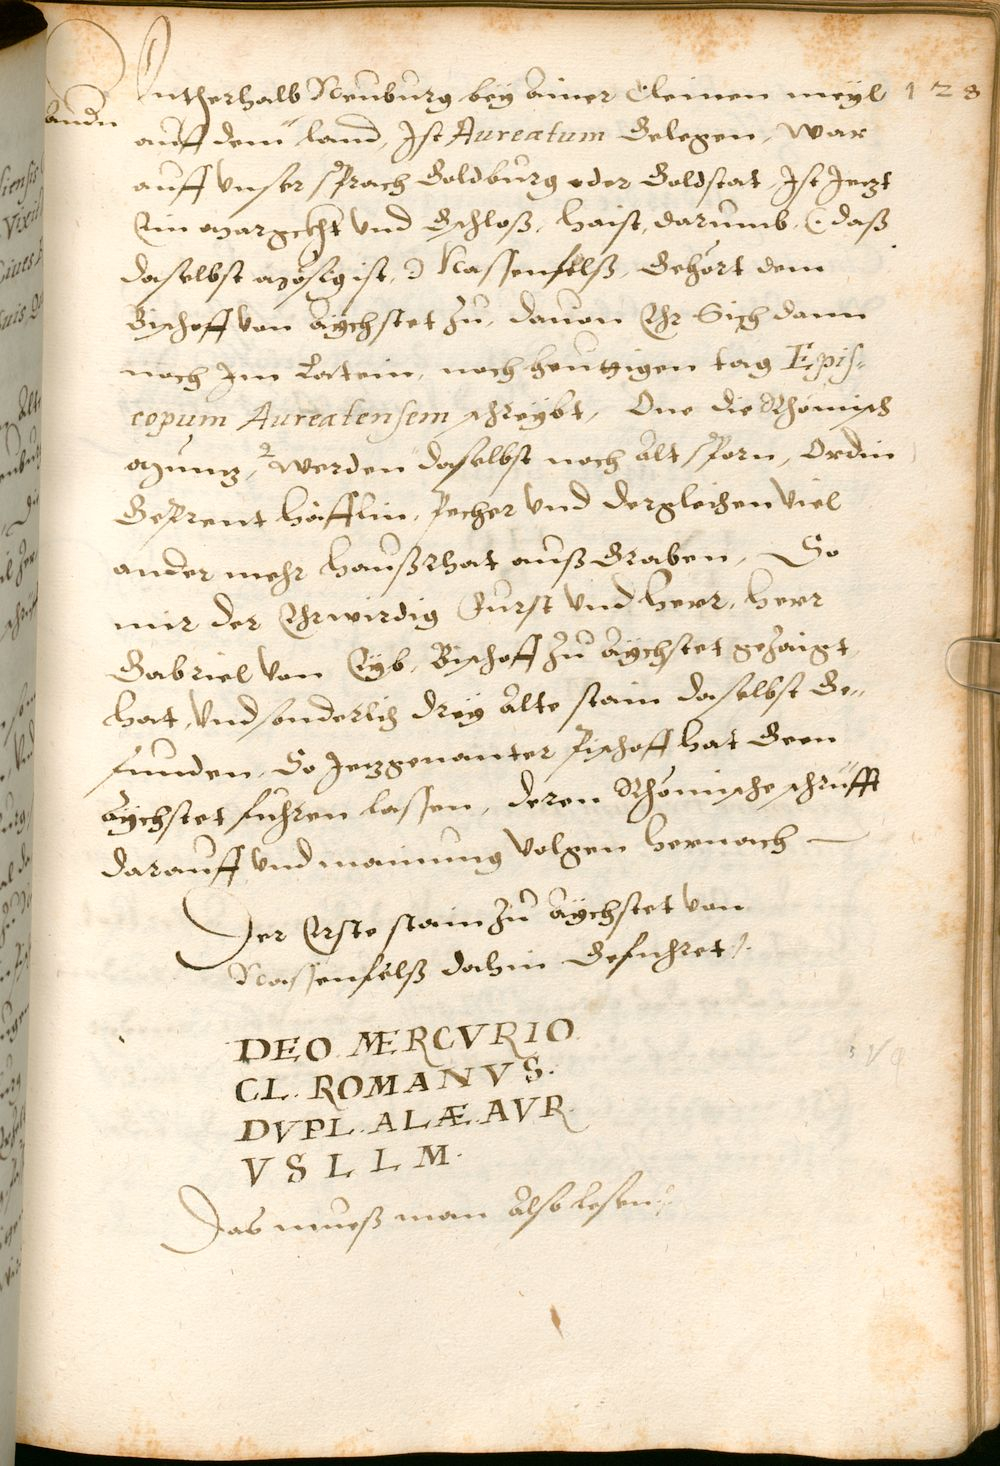 Intherhalb Neuburg bey ainer Cleinen meyl 128
auff dem land, Ist Aureatum Gelegen, war
auff unser sprach Goldburg oder Goldstat, Ist Jezt
Ein Margckht und Gschloß, haist, darumb, (daß
daselbst mösig ist,) Nassenfelß, Gehört dem
Bischoff von Aychstet zu, dauon Ehr Sich dann
noch Im Latein, noch heuttigen tag Epis=
copum Aureatensem schreybt, One die Rhömisch
Müntz, werden daselbst noch Alt Sporn, Ordin
Geprent häfflin, Pecher und dergleichen viel
ander mehr haußrhat auß Graben, So
mir der Ehrwirdig Furst und herr, herr
Gabriel von Eyb, Bischoff zu Aychstet gezaigt
hat, und sonderlich drey Alte stain daselbst Ge=
funden, So Jezgenanter Pischoff hat Geen
Aychstet fuhren lassen, deren Rhömische schrüfft
darauff und mainung volgen hernach
Der Erste stain zu Aychstet von
Nassenfelß dahin Gefuhret.
DEO MERCVRIO
CL. ROMANVS.
DVPL. ALÆ. AVR.
V S L L M.
Das mueß man Also lesen